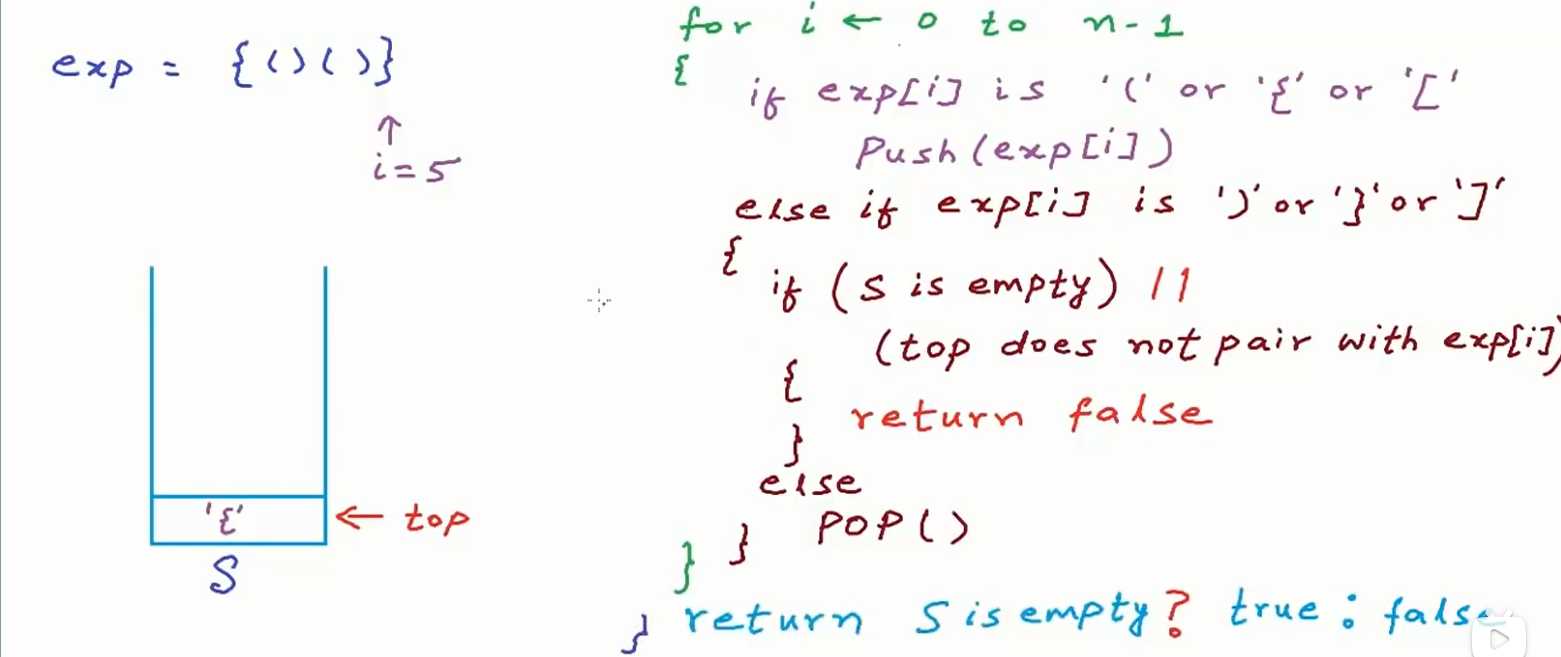 exp = {()()}
↑
i=5
'{'
← top
S
for i ← 0 to n-1
{
if exp[i] is '(' or '{' or '['
Push(exp[i])
else if exp[i] is ')' or '}' or ']'
{
if (S is empty) ||
(top does not pair with exp[i])
{
return false
}
else
POP()
}
}
return S is empty? true : false
}